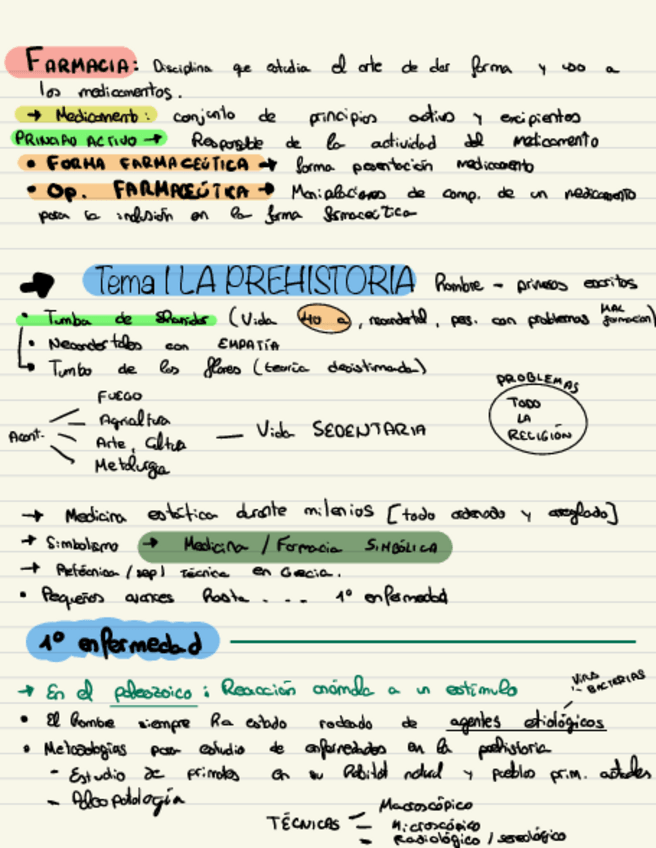 FARMACIA: Disciplina que estudia el arte de dar forma y uso a
los medicamentos.
→ Medicamento: conjunto de principios activo y excipientes
PRINCIPIO ACTIVO → Responsable de la actividad del medicamento
• FORMA FARMACEÚTICA → forma presentación medicamento
• Op. FARMACEÚTICA → Manipulaciones de comp. de un medicamento
para su inclusión en la forma farmaceútica
→ Tema 1 LA PREHISTORIA Hombre - primeros escritos
• Tumba de Shanidar (Vida 40 a, neandertal, pers. con problemas MAL formación)
• Neandertales con EMPATÍA
↳ Tumba de las flores (teoría desestimada)
PROBLEMAS
TODO
LA
RELIGIÓN
FUEGO
Agricultura
Acont. Arte, Cultura — Vida SEDENTARIA
Metalurgia
→ Medicina estática durante milenios [todo ordenado y arreglado]
→ Simbolismo → Medicina / Farmacia SIMBÓLICA
→ Pretécnica / sep / Técnica en Grecia.
• Pequeños avances hasta .... 1º enfermedad
1º enfermedad
→ En el paleozoico : Reacción anómala a un estímulo
VIRUS
BACTERIAS
• El hombre siempre ha estado rodeado de agentes etiológicos
• Metodologías para estudio de enfermedades en la prehistoria
- Estudio de primates en su habitat natural y pueblos prim. actuales
- Paleopatología
TÉCNICAS - Macroscópico
- Microscópico
- Radiológico / serológico